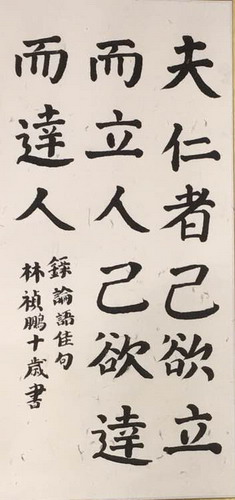 夫仁者己欲立
而立人己欲達
而達人
錄論語佳句
林禎鵬十歲書